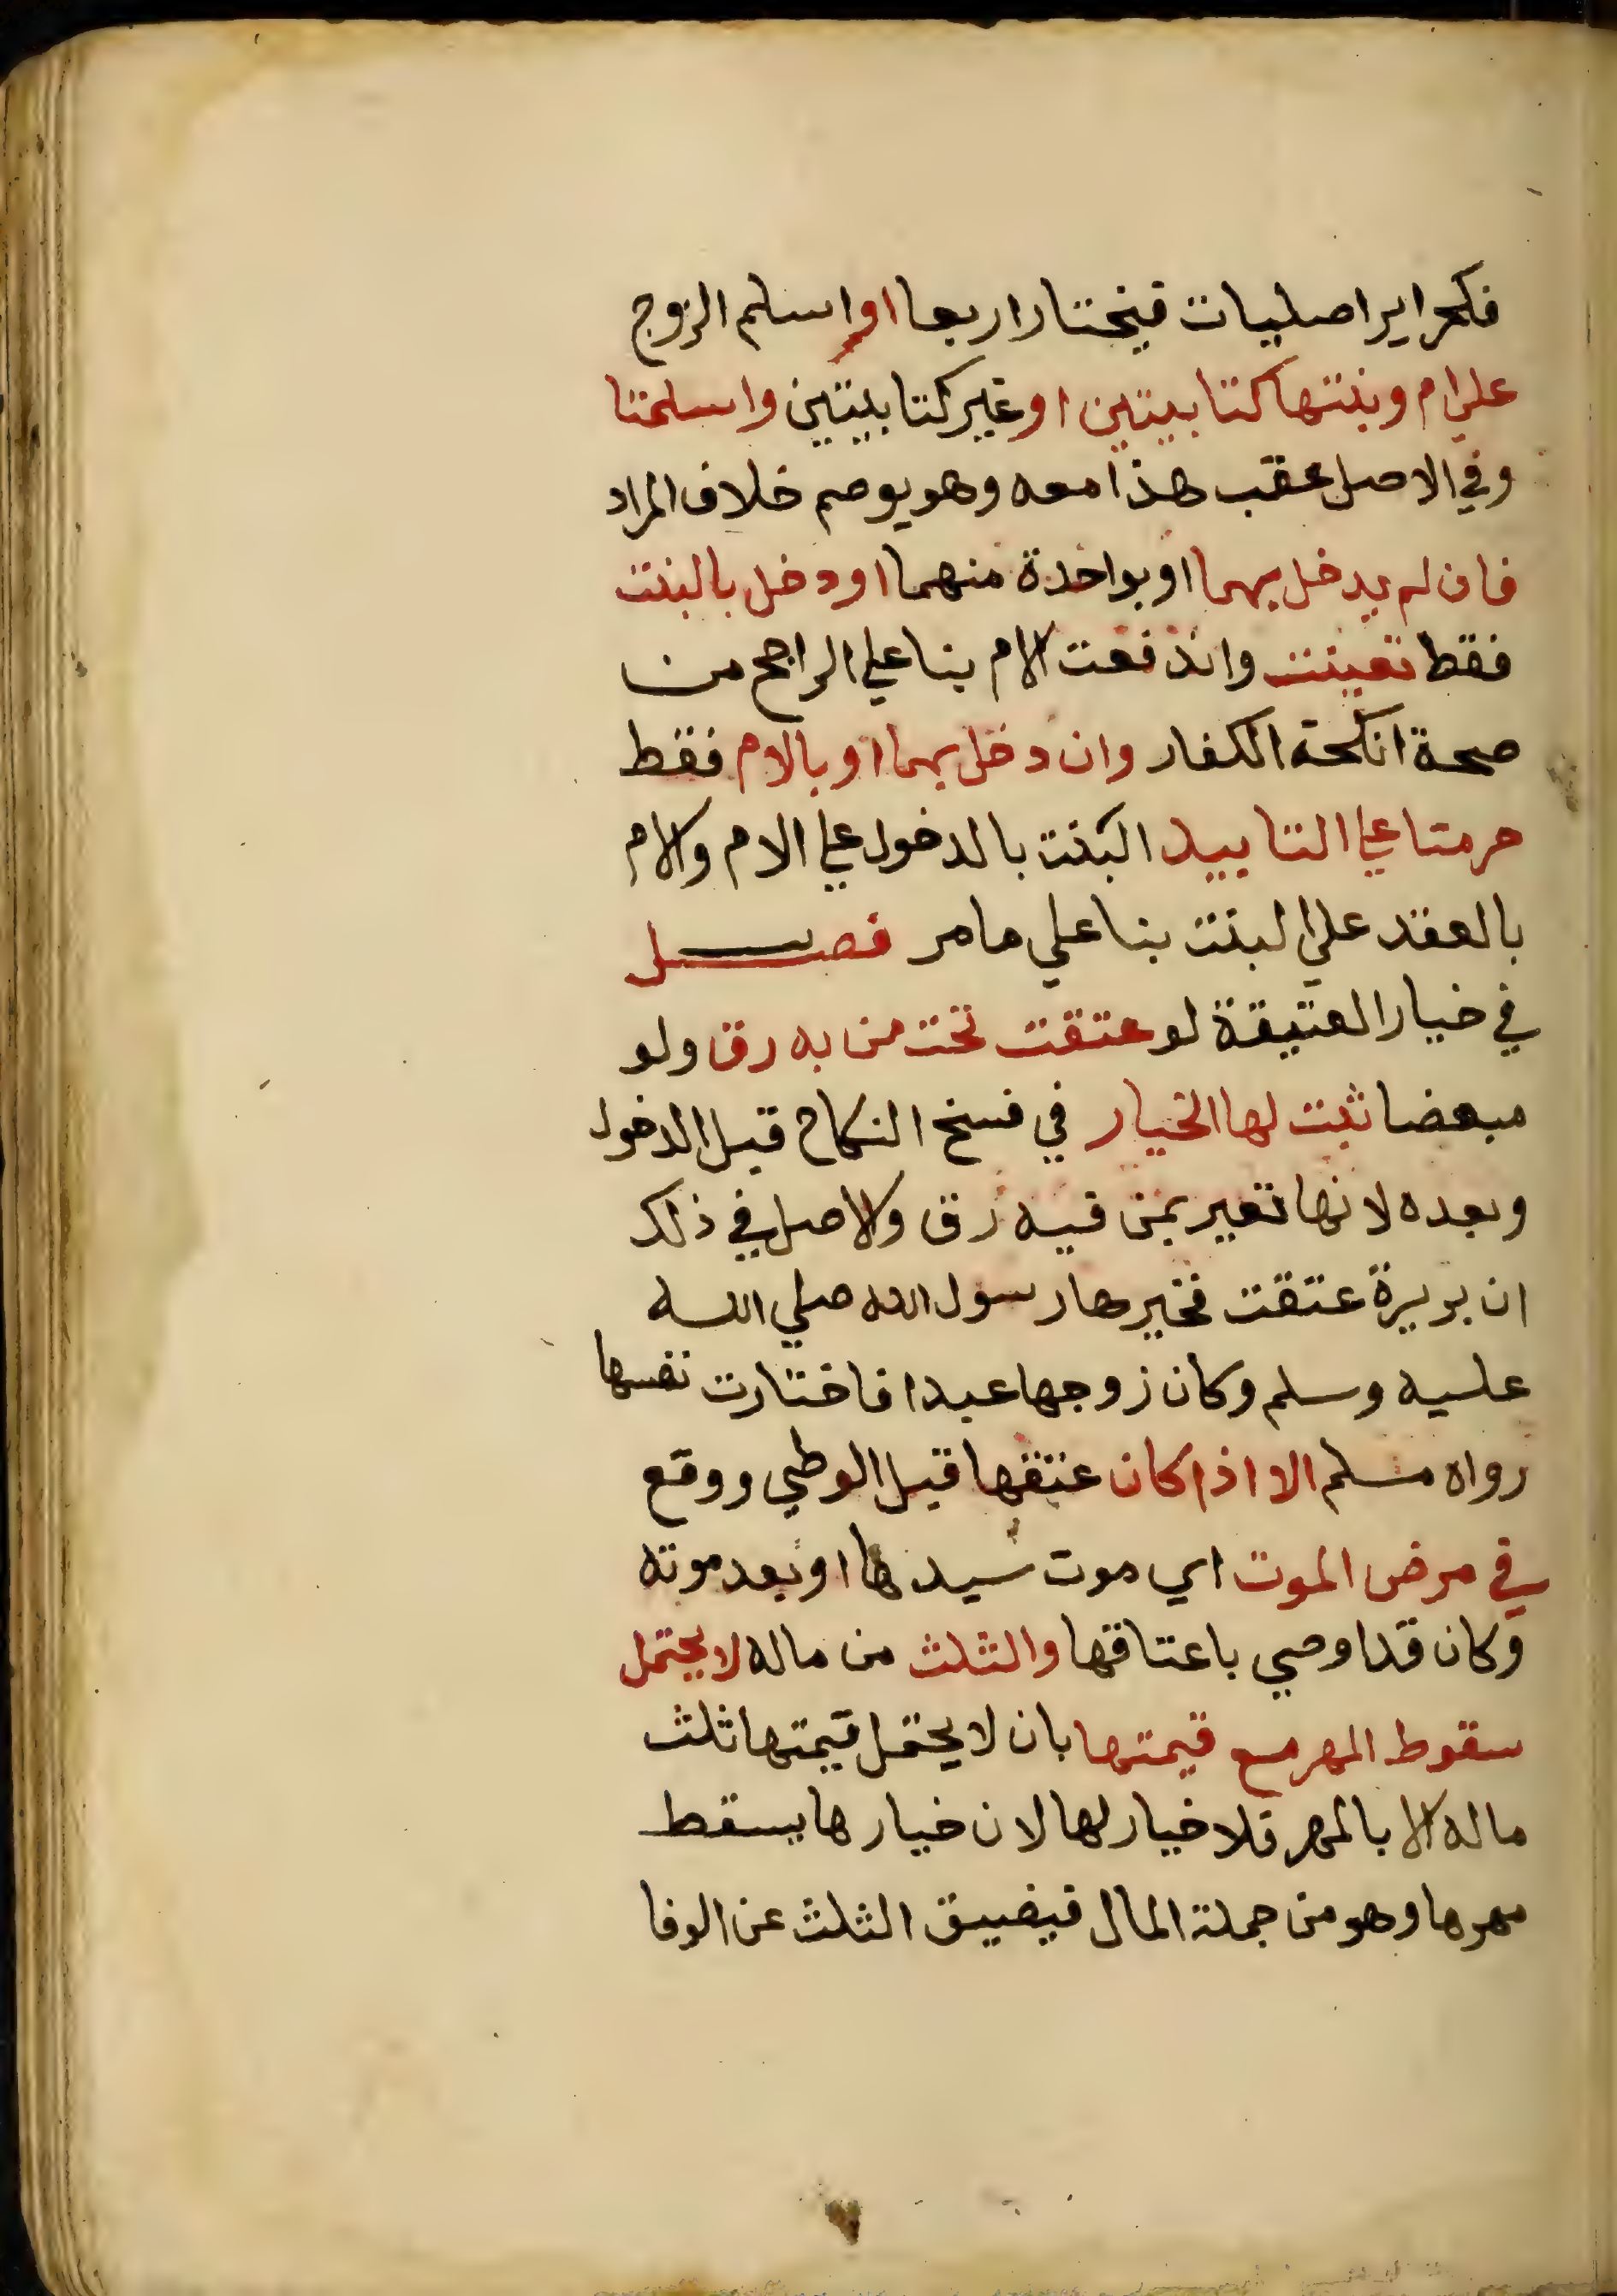 فكحراير اصليات فيختار اربعا او اسلم الزوج
علي ام وبنتها كتابيتين او غير كتابيتين واسلمتا
وفي الاصل عقب هذا معه وهو يوهم خلاف المراد
فان لم يدخل بهما او بواحدة منهما او دخل بالبنت
فقط تعينت واندفعت الام بنا علي الراجح من
صحة انكحة الكفار وان دخل بهما او بالام فقط
حرمتا علي التابيد البنت بالدخول علي الام والام
بالعقد علي البنت بنا علي ما مر فصل
في خيار العتيقة لو عتقت تحت من به رق ولو
مبعضا ثبت لها الخيار في فسخ النكاح قبل الدخول
وبعده لانها تعير بمن فيه رق والاصل في ذلك
ان بريرة عتقت فخيرها رسول الله صلي الله
عليه وسلم وكان زوجها عبدا فاختارت نفسها
رواه مسلم الا اذا كان عتقها قبل الوطي ووقع
في مرض الموت اي موت سيدها او بعد موته
وكان قد اوصي باعتاقها والثلث من ماله لا يحتمل
سقوط المهر مع قيمتها بان لا يحتمل قيمتها ثلث
ماله الا بالمهر فلا خيار لها لان خيارها يسقط
مهرها وهو من جملة المال فيضيق الثلث عن الوفا